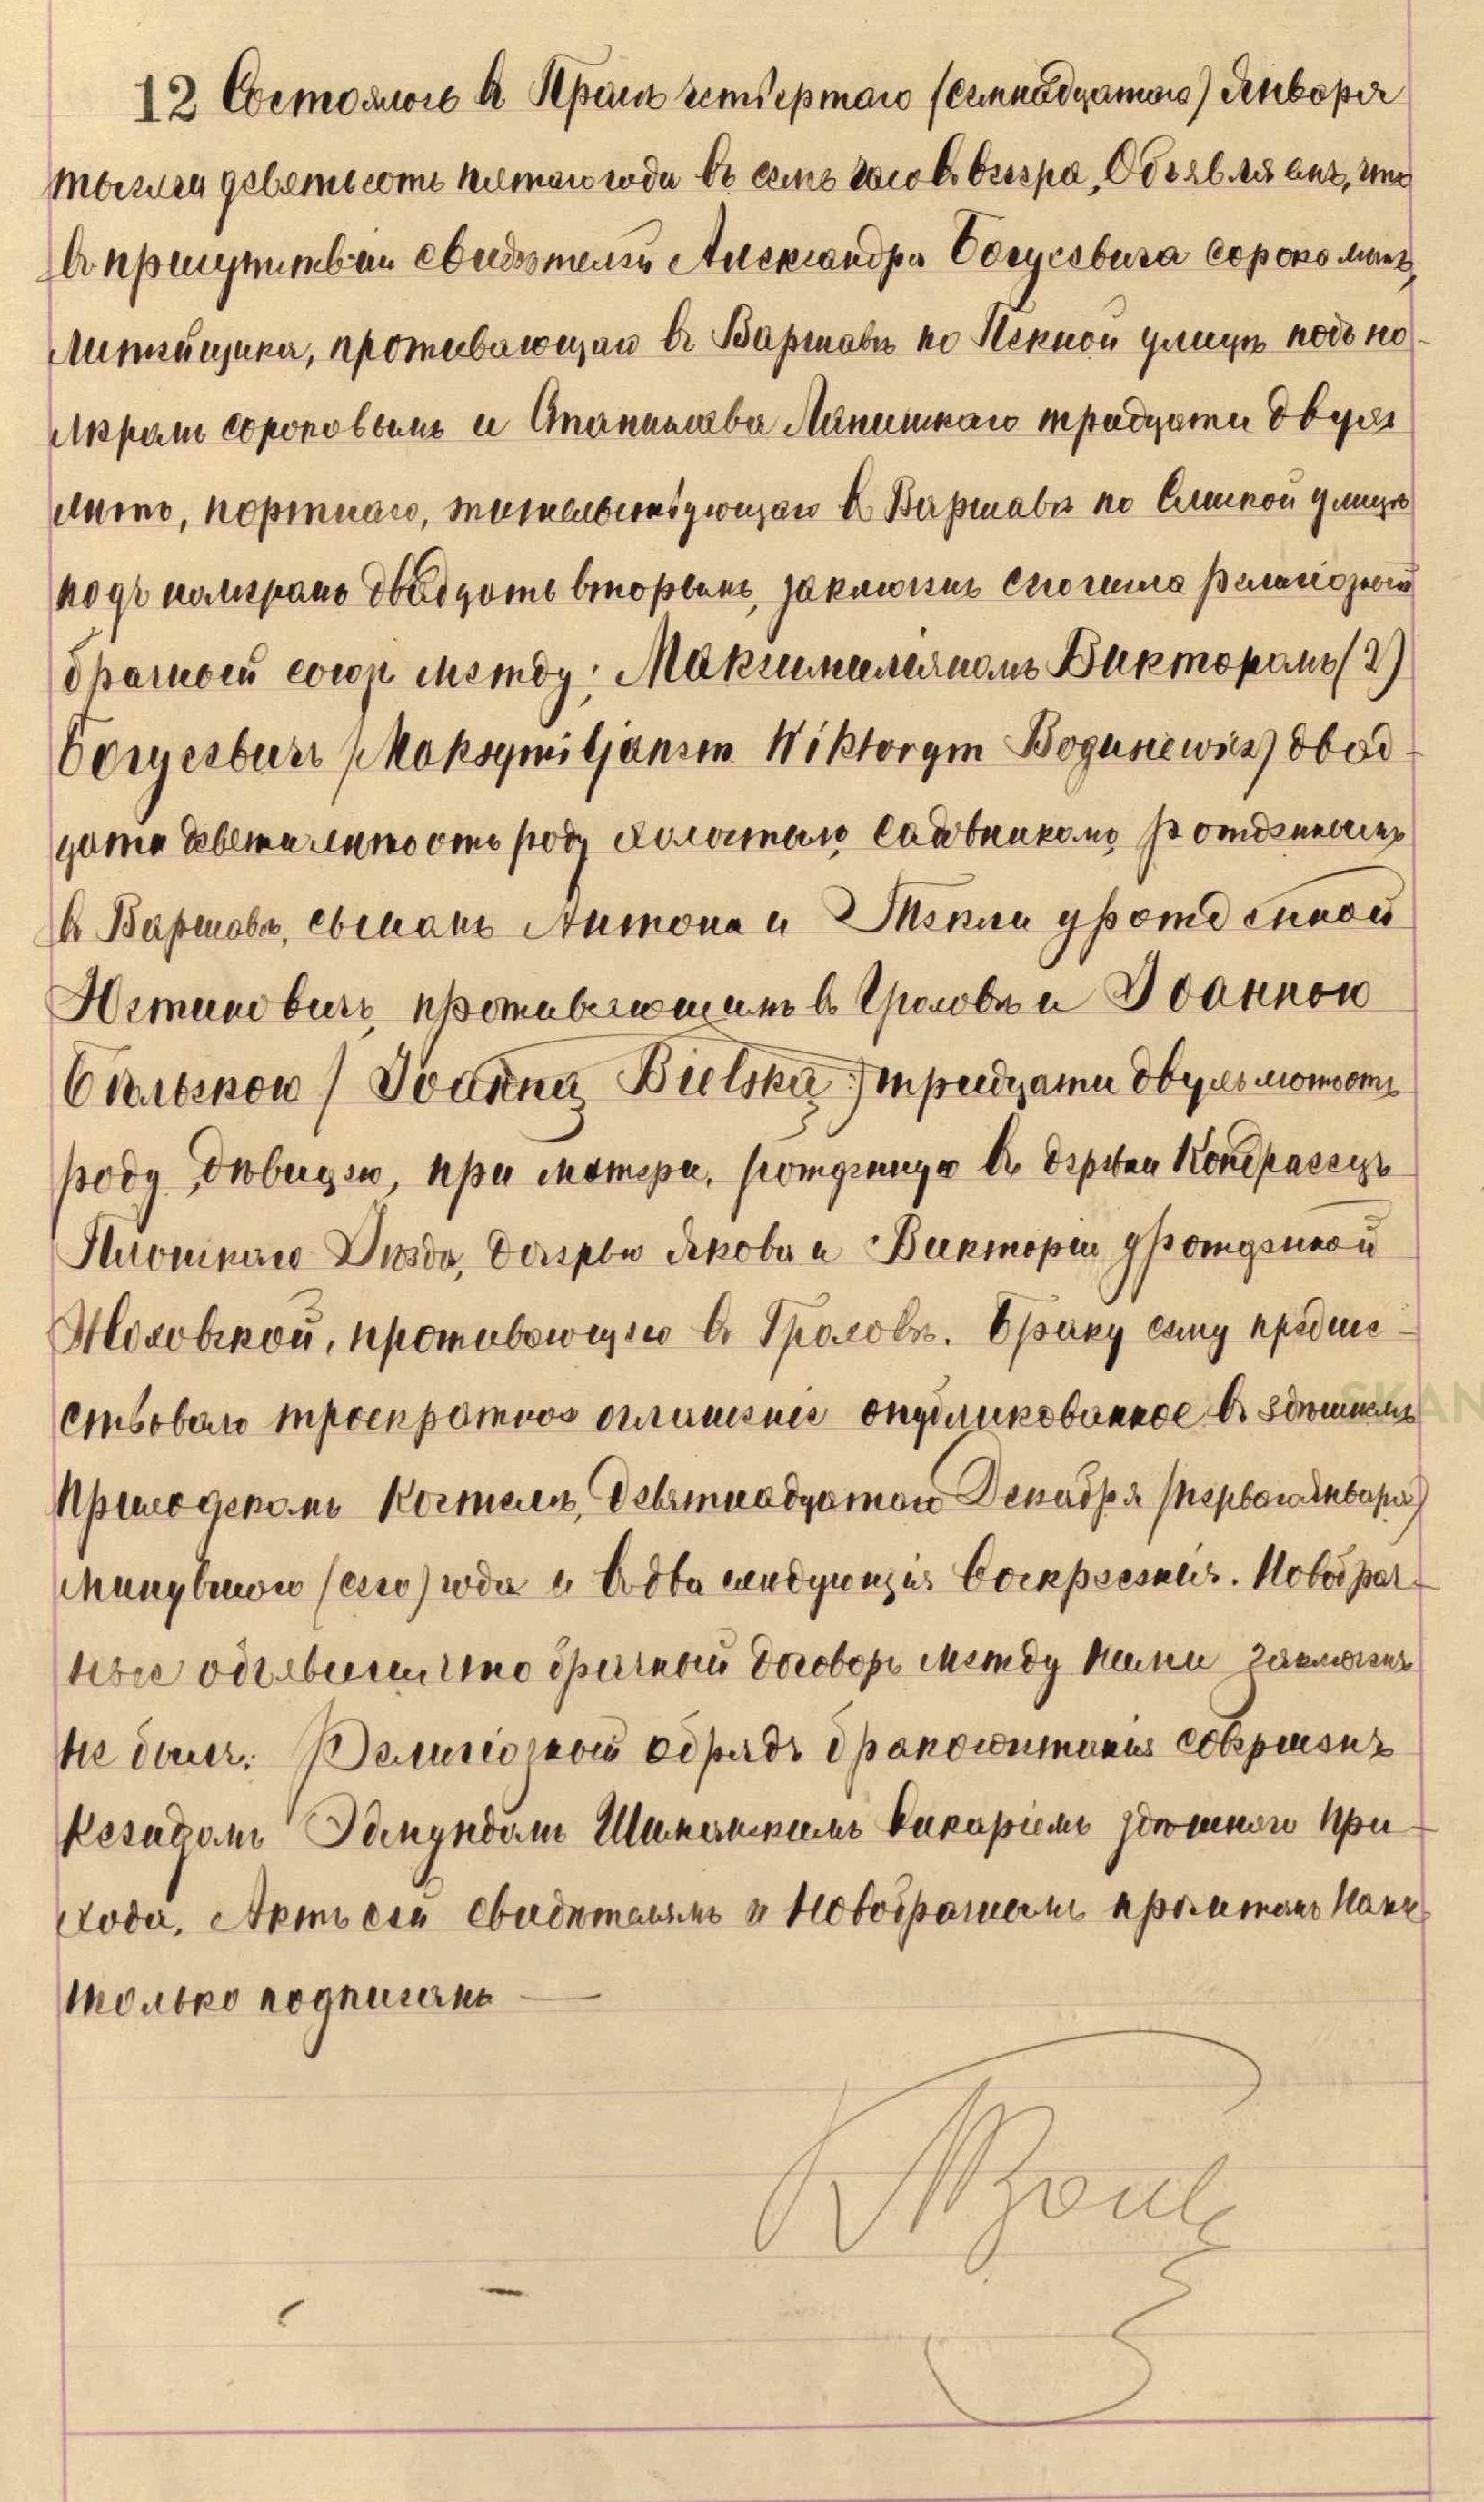 12 Состоялось въ Праге четвертаго (семнадцатаго) Января
тысяча девятьсотъ пятаго года въ семь часовъ вечера, Объявляемъ, что
въ присутствіи свидѣтелей Александра Богусевича сорока лѣтъ,
литейщика, проживающаго въ Варшавѣ по Пенкной улицѣ подъ но-
меромъ сороковымъ и Станислава Липинскаго тридцати двухъ
лѣтъ, портнаго, жительствующаго въ Варшавѣ по Слиской улицѣ
подъ номеромъ двадцать вторымъ, заключенъ сего числа религіозный
брачный союзъ между: Максимиліяномъ Викторомъ (2)
Богусевичъ (Maksymiljanem Wiktorym Bogusiewicz) двад-
цати девяти лѣтъ отъ роду холостымъ, садовникомъ, рожденнымъ
въ Варшавѣ, сыномъ Антона и Теклы урожденной
Юстиновичъ, проживающимъ въ Гроховѣ и Іоанною
Бѣльскою / Joanną Bielską :) тридцати двухъ лѣтъ отъ
роду, дѣвицею, при матери, рожденную въ деревни Кондраецъ
Плонскаго уѣзда, дочерью Якова и Викторіи урожденной
Жоховской, проживающую въ Гроховѣ. Браку сему предше-
ствовало троекратное оглашеніе опубликованное въ здѣшнемъ
приходскомъ Костелѣ, девятнадцатаго Декабря (перваго Января)
минувшаго (сего) года и въ два слѣдующія Воскресенія. Новобрач-
ные объявили что брачный договоръ между ними заключенъ
не былъ. Религіозный обрядъ бракосочитанія совершенъ
Ксендзомъ Эдмундомъ викаріемъ здѣшняго при-
хода. Актъ сей свидѣтелямъ и Новобрачнымъ прочитанъ Нами
только подписанъ —
SKAN